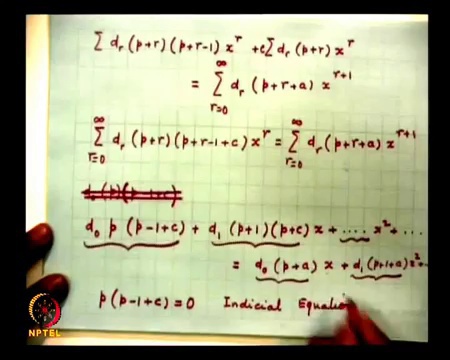 Σ d_r (p+r)(p+r-1) x^r + c Σ d_r (p+r) x^r
= Σ_{r=0}^{∞} d_r (p+r+a) x^{r+1}
Σ_{r=0}^{∞} d_r (p+r)(p+r-1+c) x^r = Σ_{r=0}^{∞} d_r (p+r+a) x^{r+1}
d_0 p (p-1+c) + d_1 (p+1)(p+c) x + .... x^2 + ...
= d_0 (p+a) x + d_1 (p+1+a) x^2 ...
p(p-1+c) = 0 Indicial Equation
NPTEL